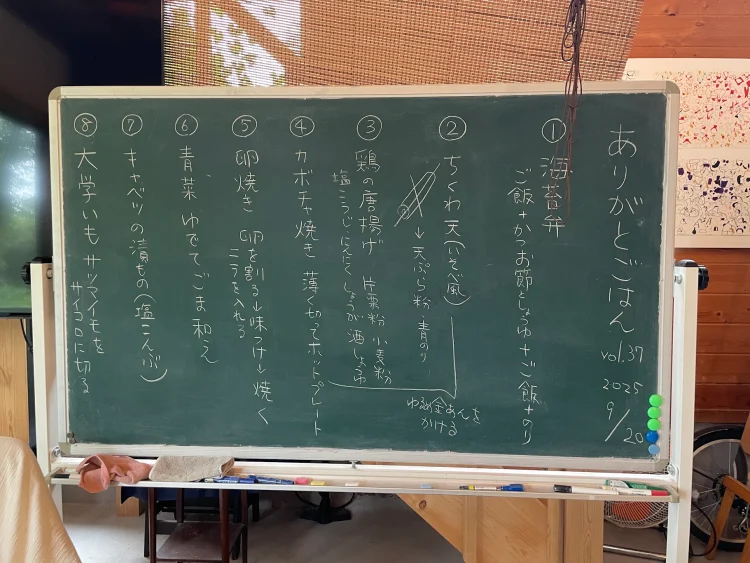 ありがとごはん vol.37
2025
9/20
① 海苔弁
ご飯+かつお節としょうゆ+ご飯+のり
② ちくわ天(いそべ風)
→天ぷら粉 青のり
かける
③ 鶏の唐揚げ 片栗粉 小麦粉
塩こうじ にんにく しょうが 酒 しょうゆ
④ カボチャ焼き 薄く切ってホットプレート
⑤ 卵焼き 卵を割る→味つけ→焼く
ニラを入れる
⑥ 青菜 ゆでてごま和え
⑦ キャベツの漬もの(塩こんぶ)
⑧ 大学いも サツマイモを
サイコロに切る